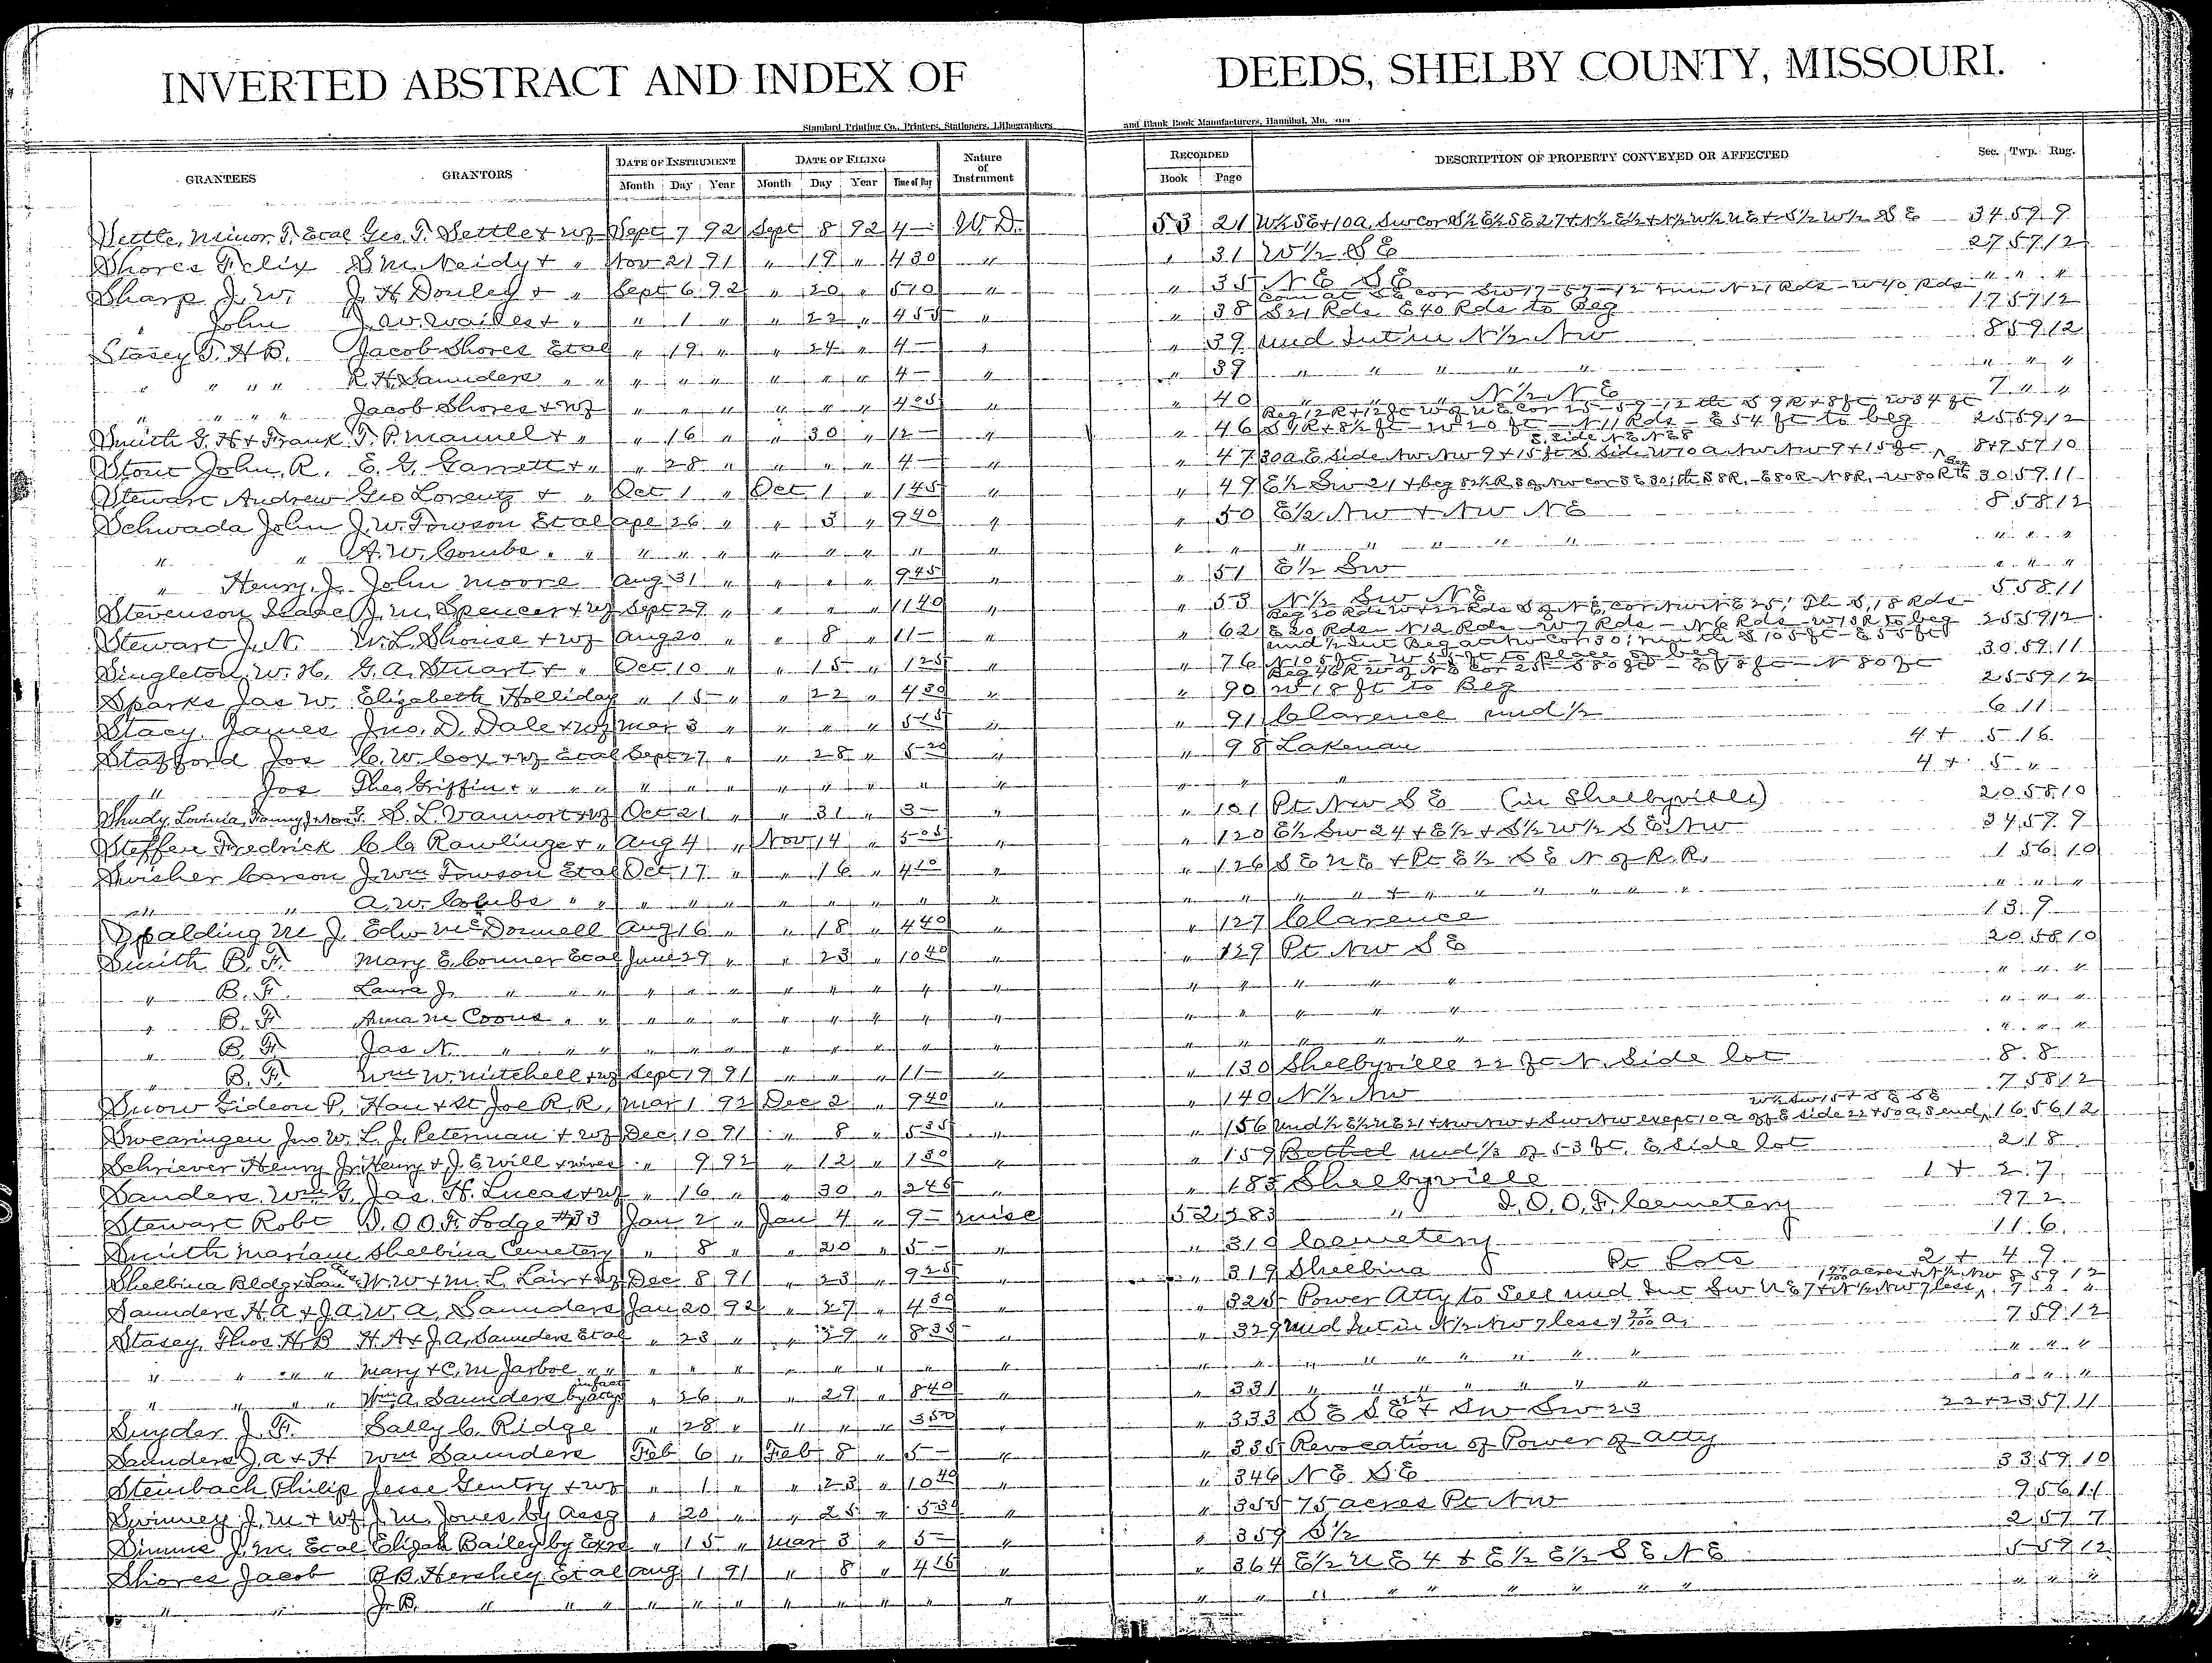 INVERTED ABSTRACT AND INDEX OF DEEDS, SHELBY COUNTY, MISSOURI.
Standard Printing Co., Printers, Stationers, Lithographers and Blank Book Manufacturers, Hannibal, Mo.
GRANTEES GRANTORS DATE OF INSTRUMENT DATE OF FILING Nature of Instrument RECORDED DESCRIPTION OF PROPERTY CONVEYED OR AFFECTED Sec. Twp. Rng.
Month Day Year Month Day Year Time of Day Book Page
Settle, Minor T. Etal Geo. T. Settle & wf Sept 7 92 Sept 8 92 4 — W.D. 53 21 W½ SE + 10a, Sw cor S½ E½ SE 27 + N½ E½ + N½ W½ NE + S½ W½ SE 34 59 9
Shores Felix S. M. Neidy & " Nov 21 91 " 19 " 4 30 " " 31 W½ SE 27 57 12
Sharp J. W. J. H. Douley & " Sept 6 92 " 20 " 5 10 " " 35 NE SE " " "
Com at SE cor Sw 17-57-12 run N 21 Rds - W 40 Rds
" John J. W. Wailes & " " 1 " " 22 " 4 55 " " 38 S 21 Rds E 40 Rds to Beg 17 57 12
Stasey T. H. B. Jacob Shores Etal " 19 " " 24 " 4 — " " 39 und Int in N½ Nw 8 59 12
" " " " R. H. Saunders " " " " " " " " 4 — " " 39 " " " " " " " "
" " " " Jacob Shores & wf " " " " " " 4 05 " " 40 " " " N½ NE 7 " "
Beg 12 R + 12 ft W of NE cor 25-59-12 th S 9 R + 8 ft W 34 ft
Smith G. H. & Frank T. P. Manuel & " " 16 " " 30 " 12 — " " 46 S 1 R + 8½ ft - W 20 ft - N 11 Rds - E 54 ft to beg 25 59 12
E. Side NE NE 8
Stout John R. E. G. Garrett & " " 28 " " " " 4 — " " 47 30a E Side Nw Nw 9 + 15 ft S Side W 10 a Nw Nw 9 + 15 ft 8+9 57 10
Stewart Andrew Geo Lorentz & " Oct 1 " Oct 1 " 1 45 " " 49 E½ Sw 21 + beg 82½ R S of Nw cor SE 30; th S 8 R. - E 80 R - N 8 R. - W 80 R to 30 59 11
Schwada John J. W. Towson Etal Apl 26 " " 3 " 9 40 " " 50 E½ Nw + Nw NE 8 58 12
" " A. W. Combs " " " " " " " " " " " " " " " " " " " "
" Henry J. John Moore Aug 31 " " " " 9 45 " " 51 E½ Sw " " "
Stevenson Isaac J. M. Spencer & wf Sept 29 " " " " 11 40 " " 53 N½ Sw NE 5 58 11
Stewart J. N. W. L. Shouse & wf Aug 20 " " 8 " 11 — " " 62 E 20 Rds - N 12 Rds - W 7 Rds - N 6 Rds - W 13 R to beg 25 59 12
Singleton W. H. G. A. Stuart & " Oct 10 " " 15 " 1 25 " " 76 N 105 ft - W 55 ft to place of beg 30 59 11
Beg 46 R W of NE cor 25 - S 80 ft - E 18 ft - N 80 ft
Sparks Jas W. Elizabeth Holliday " 15 " " 22 " 4 30 " " 90 W 18 ft to Beg 25 59 12
Stacy James Jno. D. Dale & wf Mar 3 " " " " 5 15 " " 91 Clarence und ½ 6 11
Stafford Jos C. W. Cox & wf Etal Sept 27 " " 28 " 5 20 " " 98 Lakenan 4 + 5 16
" Jos Theo Griffin & " " " " " " " " " " " " " " 4 + 5 "
Shudy, Lovinia, Fanny J. & Nora F. S. L. Vannort & wf Oct 21 " " 31 " 3 — " " 101 Pt Nw SE (in Shelbyville) 20 58 10
Steffen Fredrick C. C. Rawlings & " Aug 4 " Nov 14 " 5 05 " " 120 E½ Sw 24 + E½ + S½ W½ SE Nw 34 59 9
Swisher Carson J. Wm Towson Etal Oct 17 " " 16 " 4 10 " " 126 SE NE + Pt E½ SE N of R. R. 1 56 10
" " A. W. Combs " " " " " " " " " " " " " " + " " " " " " " " "
Spalding M J. Edw McDonnell Aug 16 " " 18 " 4 40 " " 127 Clarence 13 9
Smith B. F. Mary E. Conner Etal June 29 " " 23 " 10 40 " " 129 Pt Nw SE 20 58 10
" B. F. Laura J. " " " " " " " " " " " " " " " " " " "
" B. F. Anna M Coons " " " " " " " " " " " " " " " " " "
" B. F. Jas N. " " " " " " " " " " " " " " " " " "
" B. F. Wm W. Mitchell & wf Sept 19 91 " " " 11 — " " 130 Shelbyville 22 ft N. Side lot 8 8
Snow Gideon P. Han & St Joe R.R. Mar 1 92 Dec 2 " 9 40 " " 140 N½ Nw 7 58 12
W½ Sw 15 + SE SE
Swearingen Jno W. L. J. Peterman & wf Dec 10 91 " 8 " 5 35 " " 156 und ½ E½ NE 21 + Nw Nw + Sw Nw except 10 a off E side 22 + 50 a S end, 16 56 12
Schriever Henry Jr. Henry & J. E Will & wives " 9 92 " 12 " 1 30 " " 159 Bethel und ⅓ of 53 ft. E Side lot 2 18
Sanders, Wm G. Jas. H. Lucas & wf " 16 " " 30 " 2 45 " " 185 Shelbyville 1 + 2 7
Stewart Robt I. O. O. F. Lodge #33 Jan 2 " Jan 4 " 9 — misc 52 283 " I. O. O. F. Cemetery 97 2
Smith Mariam Shelbina Cemetery " 8 " " 20 " 5 — " " 319 Cemetery 11 6
Shelbina Bldg & Loan W. W. & M. L. Lair & wf Dec 8 91 " 23 " 9 25 " " 319 Shelbina Pt Lots 2 + 4 9
Saunders H A & J A W. A. Saunders Jan 20 92 " 27 " 4 30 " " 325 Power Atty to Sell und Int Sw NE 7 + N½ Nw 7 less 7 " "
Stasey, Thos. H. B H. A & J. A. Saunders Etal " 23 " " 29 " 8 35 " " 329 und Int in N½ Nw 7 less 1 27/100 a. 7 59 12
" " " " Mary & C. M. Jarboe " " " " " " " " " " " " " " " " " " " " " "
" " " " Wm A. Saunders by atty in fact " 26 " " 29 " 8 40 " " 331 " " " " " " " " " "
Snyder J. F. Sally C. Ridge " 28 " " " " 3 50 " " 333 SE SE 22 + Sw Sw 23 22+23 57 11
Saunders J. A & H Wm Saunders Feb 6 " Feb 8 " 5 — " " 335 Revocation of Power of Atty
Steinbach Philip Jesse Gentry & wf " 1 " " 23 " 10 40 " " 346 NE SE 33 59 10
Swinney J. M & wf J. M. Jones by Assg " 20 " " 25 " 5 30 " " 355 75 acres Pt Nw 9 56 11
Simms J. M. Etal Elijah Bailey by Exrs " 15 " Mar 3 " 5 — " " 359 S½ 2 57 7
Shores Jacob B. B. Hershey Etal Aug 1 91 " 8 " 4 15 " " 364 E½ NE 4 + E½ E½ SE NE 5 59 12
" " J. B. " " " " " " " " " " " " " " " " " " " " " "